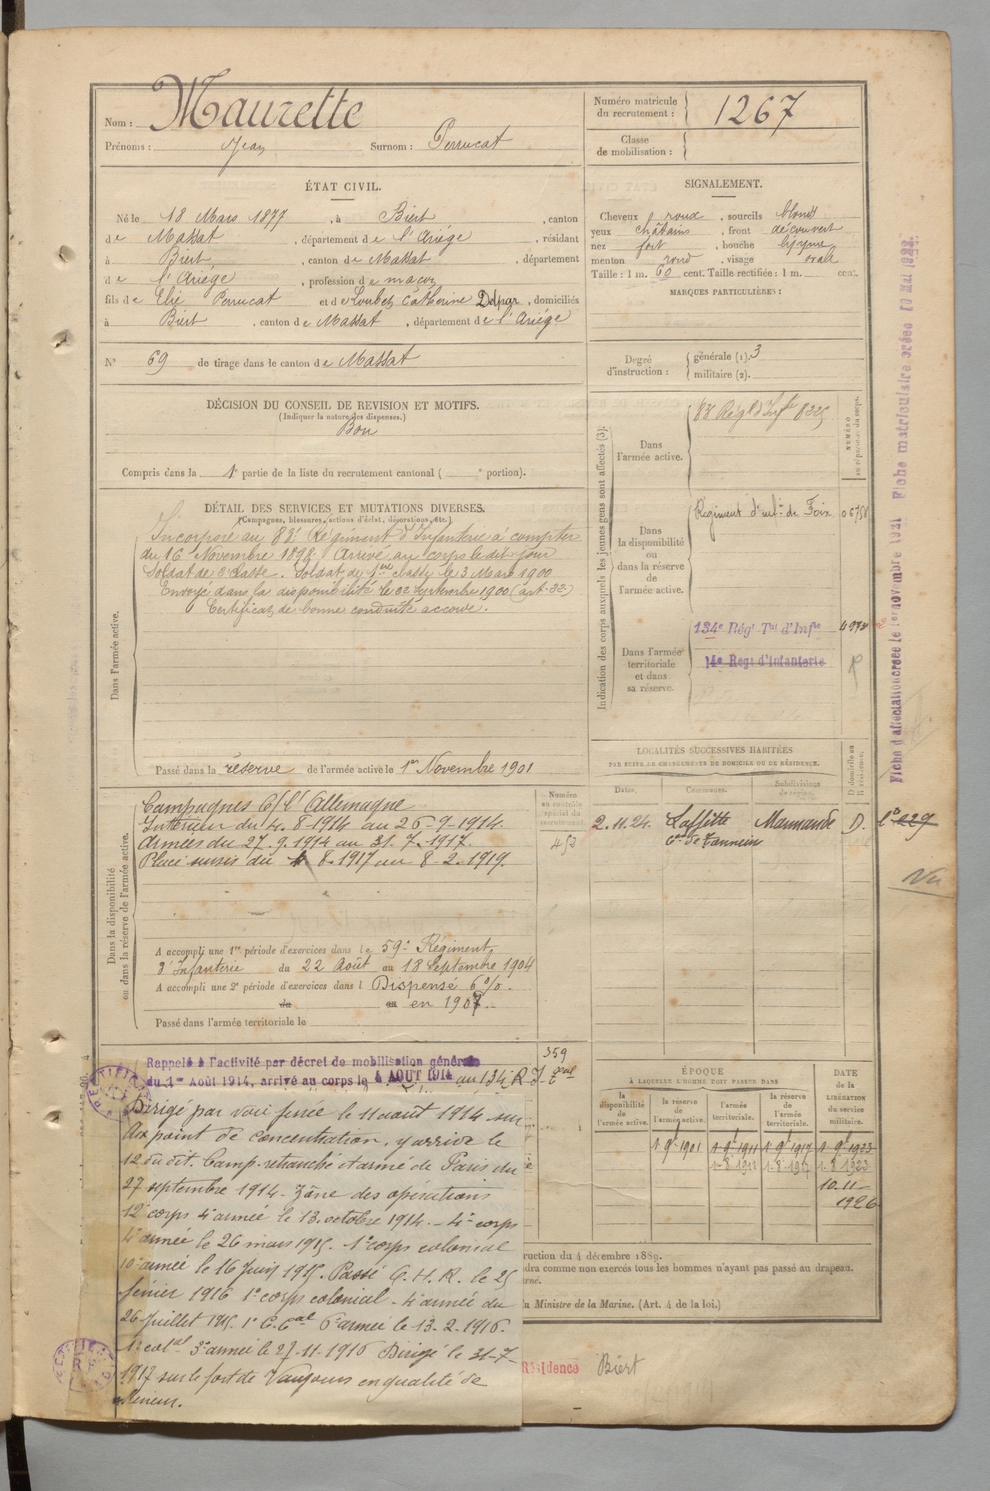 Nom : Maurette
Prénoms : Jean Surnom : Perrucat
Numéro matricule
du recrutement : 1267
Classe
de mobilisation :
ÉTAT CIVIL.
Né le 18 Mars 1877, à Biert, canton
de Massat, département de l'Ariège, résidant
à Biert, canton de Massat, département
de l'Ariège, profession de maçon
fils de Elie Perrucat et de Loubet Catherine, domiciliés
à Biert, canton de Massat, département de l'Ariège
N° 69 de tirage dans le canton de Massat
SIGNALEMENT.
Cheveux roux, sourcils blonds
yeux châtains, front découvert
nez fort, bouche moyenne
menton rond, visage ovale
Taille : 1 m. 60 cent. Taille rectifiée : 1 m. cent.
MARQUES PARTICULIÈRES :
Degré
d'instruction :
générale (1). 3
militaire (2).
DÉCISION DU CONSEIL DE REVISION ET MOTIFS.
(Indiquer la nature des dispenses.)
Bon
Compris dans la 1e partie de la liste du recrutement cantonal ( e portion).
DÉTAIL DES SERVICES ET MUTATIONS DIVERSES.
(Campagnes, blessures, actions d'éclat, décorations, etc.)
Dans l'armée active.
Incorporé au 83e Régiment d'Infanterie à compter
du 16 Novembre 1898. Arrivé au corps le dit jour
Soldat de 2e classe. Soldat de 1ère classe le 3 Mars 1900
Envoyé dans la disponibilité le 22 septembre 1900
Certificat de bonne conduite accordé.
Passé dans la réserve de l'armée active le 1er Novembre 1901
Indication des corps auxquels les jeunes gens sont affectés (3).
NUMÉRO
au répertoire du corps.
Dans
l'armée active.
83e Régt d'Infie
Dans
la disponibilité
ou
dans la réserve
de
l'armée active.
Régiment d'infie de Foix
Dans l'armée
territoriale
et dans
sa réserve.
134e Régt Tal d'Infie
14e Regt d'Infanterie
LOCALITÉS SUCCESSIVES HABITÉES
PAR SUITE DE CHANGEMENTS DE DOMICILE OU DE RÉSIDENCE.
Dates. Communes. Subdivisions
de région. D. domicile ou
R. résidence.
2.11.24. Laffitte Marmande D.
con de Tonneins
Dans la disponibilité
ou dans la réserve de l'armée active.
Numéro
au contrôle
spécial du
recrutement.
Campagnes C/ l'Allemagne
Intérieur du 4.8.1914 au 26-9-1914.
Armées du 27.9.1914 au 31.7.1917.
Placé sursis du 8.1917 au 8-2-1919.
A accompli une 1re période d'exercices dans le 59e Régiment
d'Infanterie du 22 Août au 18 Septembre 1904
A accompli une 2e période d'exercices dans l Dispensé 6 %.
du au en 1907.
Passé dans l'armée territoriale le
Rappelé à l'activité par décret de mobilisation générale
du 1er Août 1914, arrivé au corps le 4 AOUT 1914 au 134e R.I. Tal
Dirigé par voie ferrée le 11 août 1914 sur
point de concentration, y arrive le
12 du dit. Camp retranché et armé de Paris du
27 septembre 1914 - Zône des opérations
12e corps 4e armée le 13 octobre 1914. - 4e corps
4e armée le 26 mars 1915. 1er corps colonial
10e armée le 16 Juin 1915. Passé G.H.R. le 25
février 1916 1er corps colonial - 4e armée du
26 Juillet 1915. 1er C.Cal 6e armée le 13.2.1916.
1er colal 3e armée le 27.11.1916 Dirigé le 31-7-
1917 sur le fort de Vaujours en qualité de
Mineur.
ÉPOQUE
À LAQUELLE L'HOMME DOIT PASSER DANS
la
disponibilité
de
l'armée active. la réserve
de
l'armée active. l'armée
territoriale. la réserve
de
l'armée
territoriale. DATE
de la
LIBÉRATION
du service
militaire.
1. 9bre 1901 1. 9bre 1911 1. 9bre 1917 1. 9bre 1923
1. 8. 1917 1. 8. 1923
10.11-
1926
ruction du 4 décembre 1889.
ndra comme non exercés tous les hommes n'ayant pas passé au drapeau.
u Ministre de la Marine. (Art. 4 de la loi.)
Résidence Biert
Fiche d'affectation créée le 1er novembre 1921 Fiche matriculaire créée 10 Mai 1923.
Vu